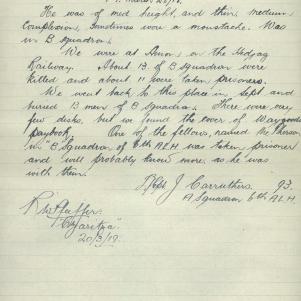 He was of med height, and thin, medium
Complexion, sometimes wore a moustache. Was
in B Squadron.
We were at on the Hedjaz
Railway. About 13 of B Squadron were
killed and about 11 were taken prisoners.
We went back to this place in Sept and
buried 13 men of B Squadron. There were very
few disks, but we found the cover of Waygood's
paybook. One of the fellows, named
in "B Squadron of 6th ALH was taken prisoner
and will probably know more as he was
with them.
J Carruthers 93.
A Squadron 6th ALH.
20/3/19.